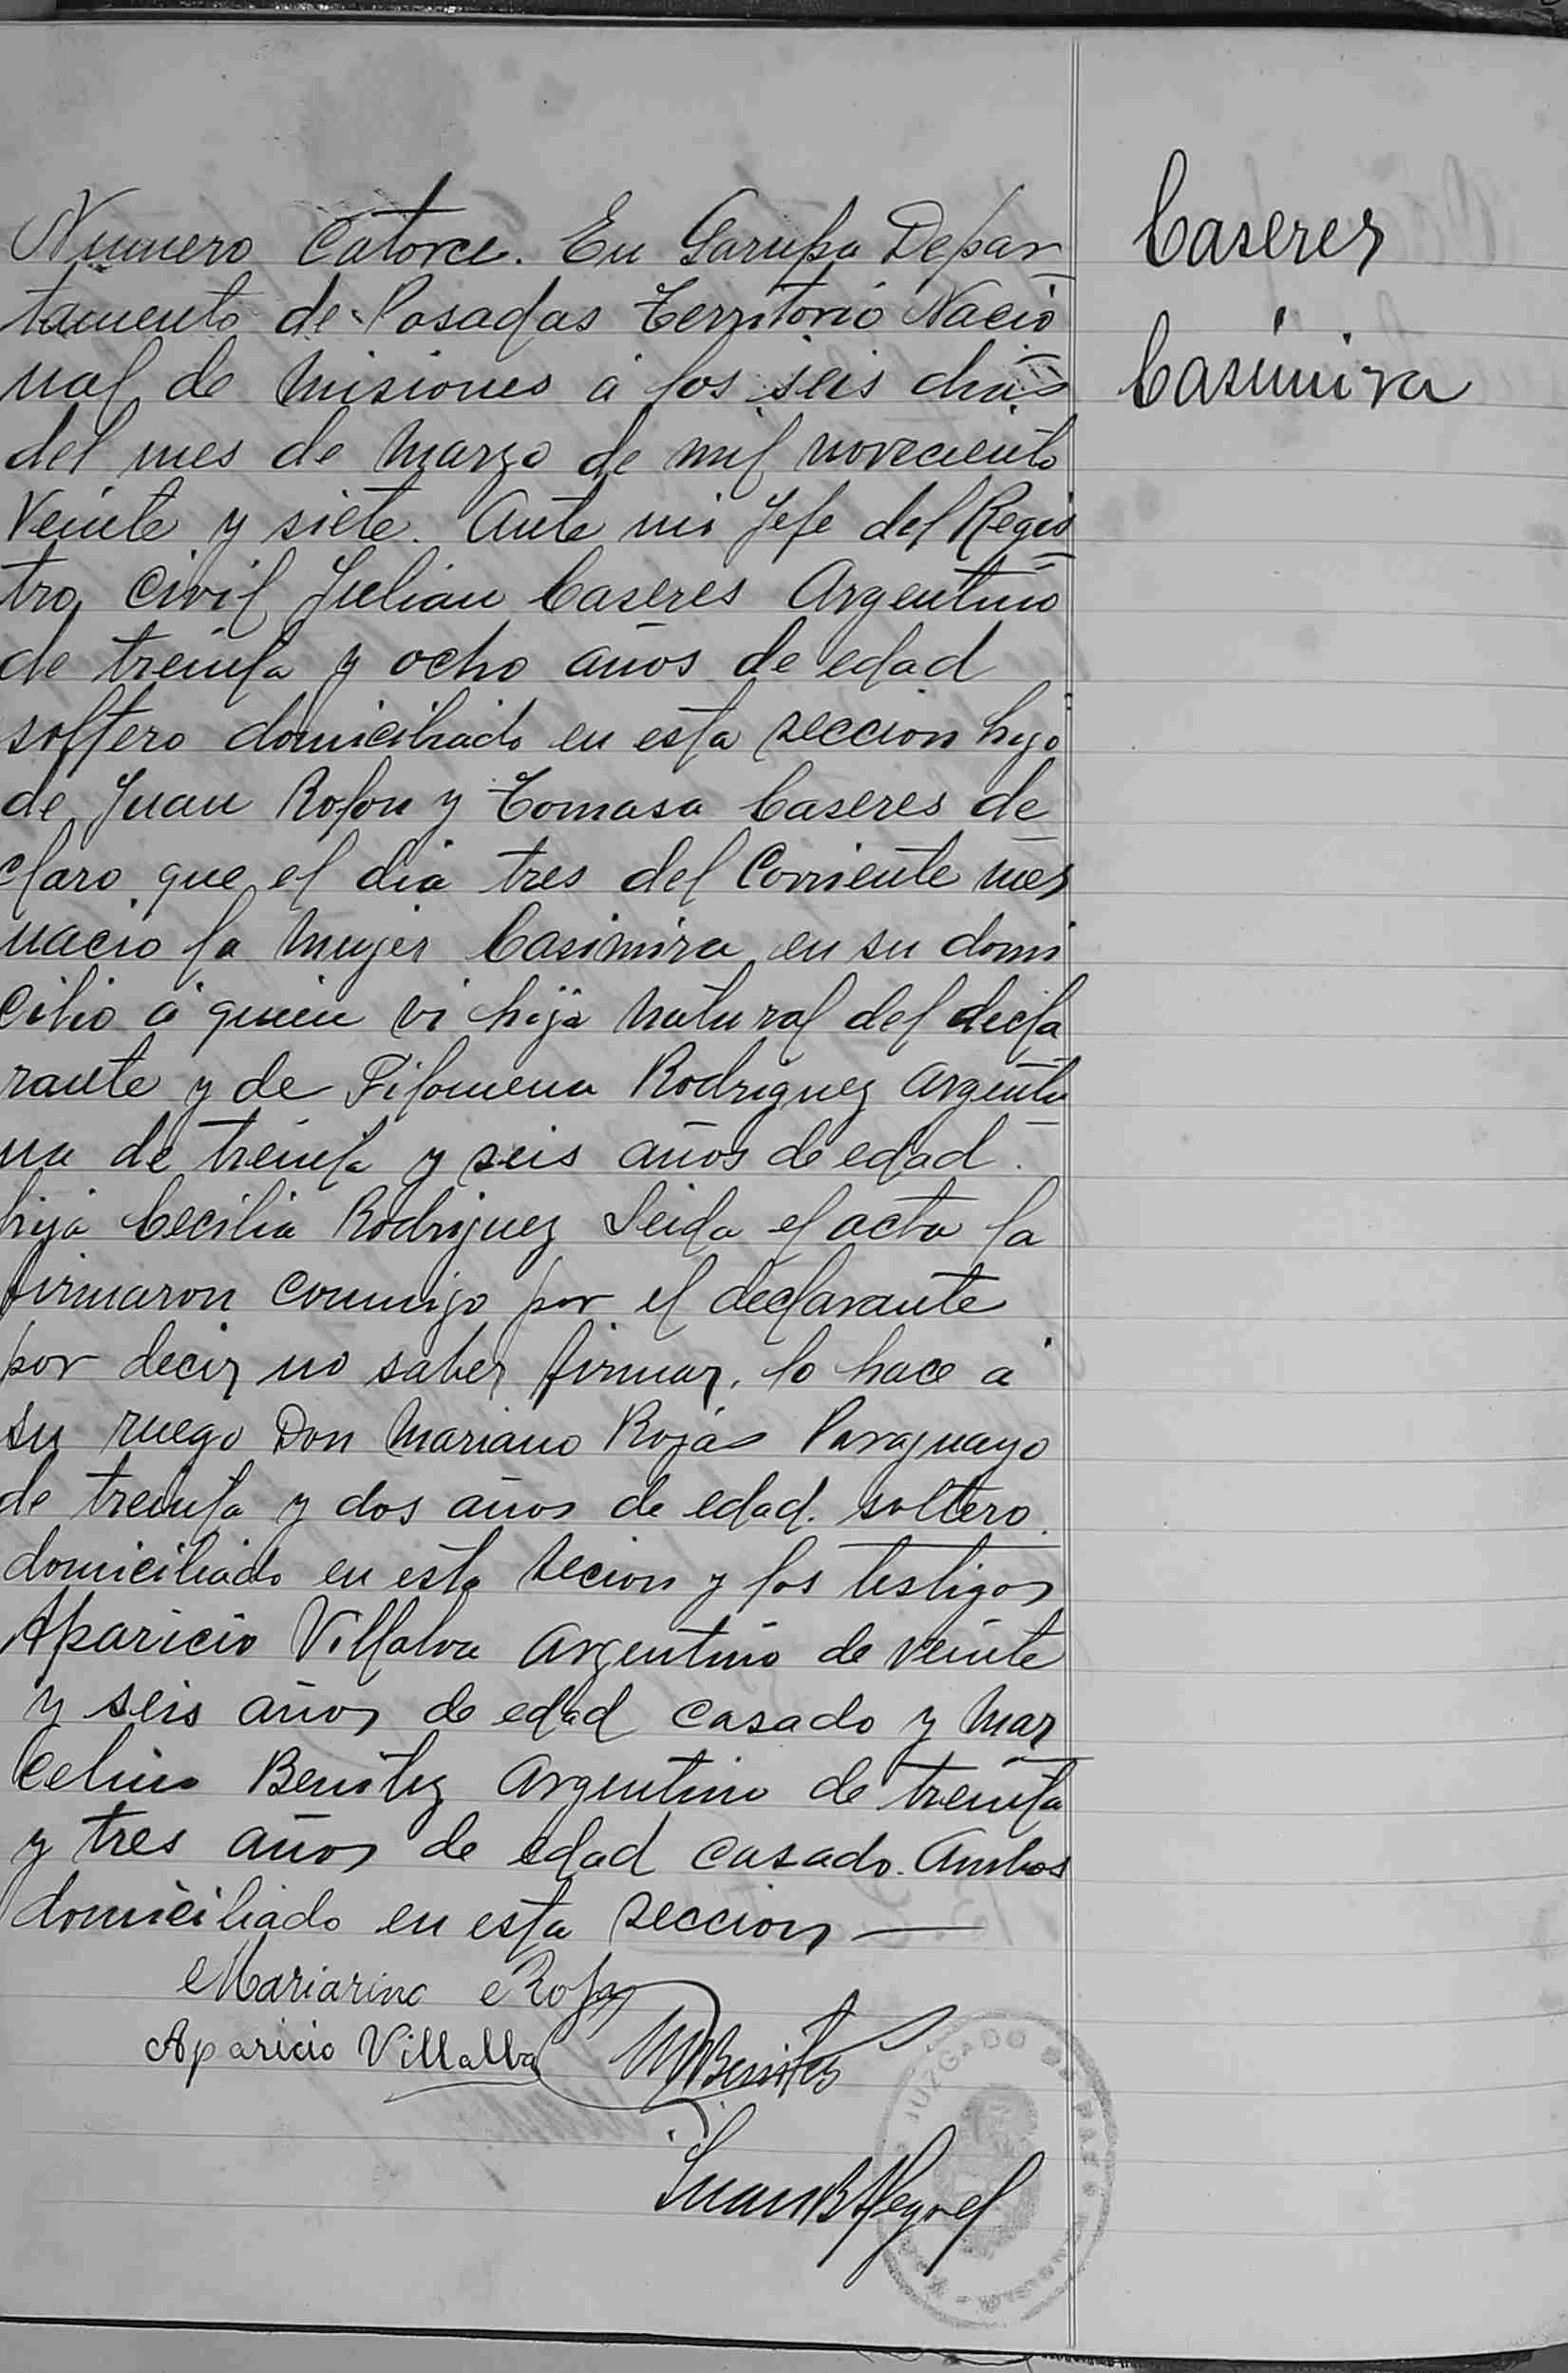 Caseres
Casimira
Numero Catorce. En Garupa Depar
tamento de Posadas Territorio Nacio
nal de Misiones á los seis dias
del mes de Marzo de mil noveciento
Veinte y siete. Ante mi Jefe del Regis
tro Civil Julian Caseres Argentino
de treinta y ocho años de edad
soltero domiciliado en esta seccion hijo
de Juan Rolon y Tomasa Caseres de
claro que el dia tres del Corriente mes
nacio la mujer Casimira en su domi
cilio á quien vi hija natural del decla
rante y de Filomena Rodriguez Argenti
na de treinta y seis años de edad.
hija Cecilia Rodriguez Leida el acta la
firmaron conmigo por el declarante
por decir no saber firmar, lo hace á
su ruego Don Mariano Rojas Paraguayo
de treinta y dos años de edad. soltero.
domiciliado en esta secion y los testigos
Aparicio Villalva Argentino de veinte
y seis años de edad casado y Mar
celino Benitez Argentino de treinta
y tres años de edad casado. Ambos
domiciliado en esta seccion —
Mariarino Rojas
Aparicio Villalba MBenites
JUZGADO DE PAZ
Juan B